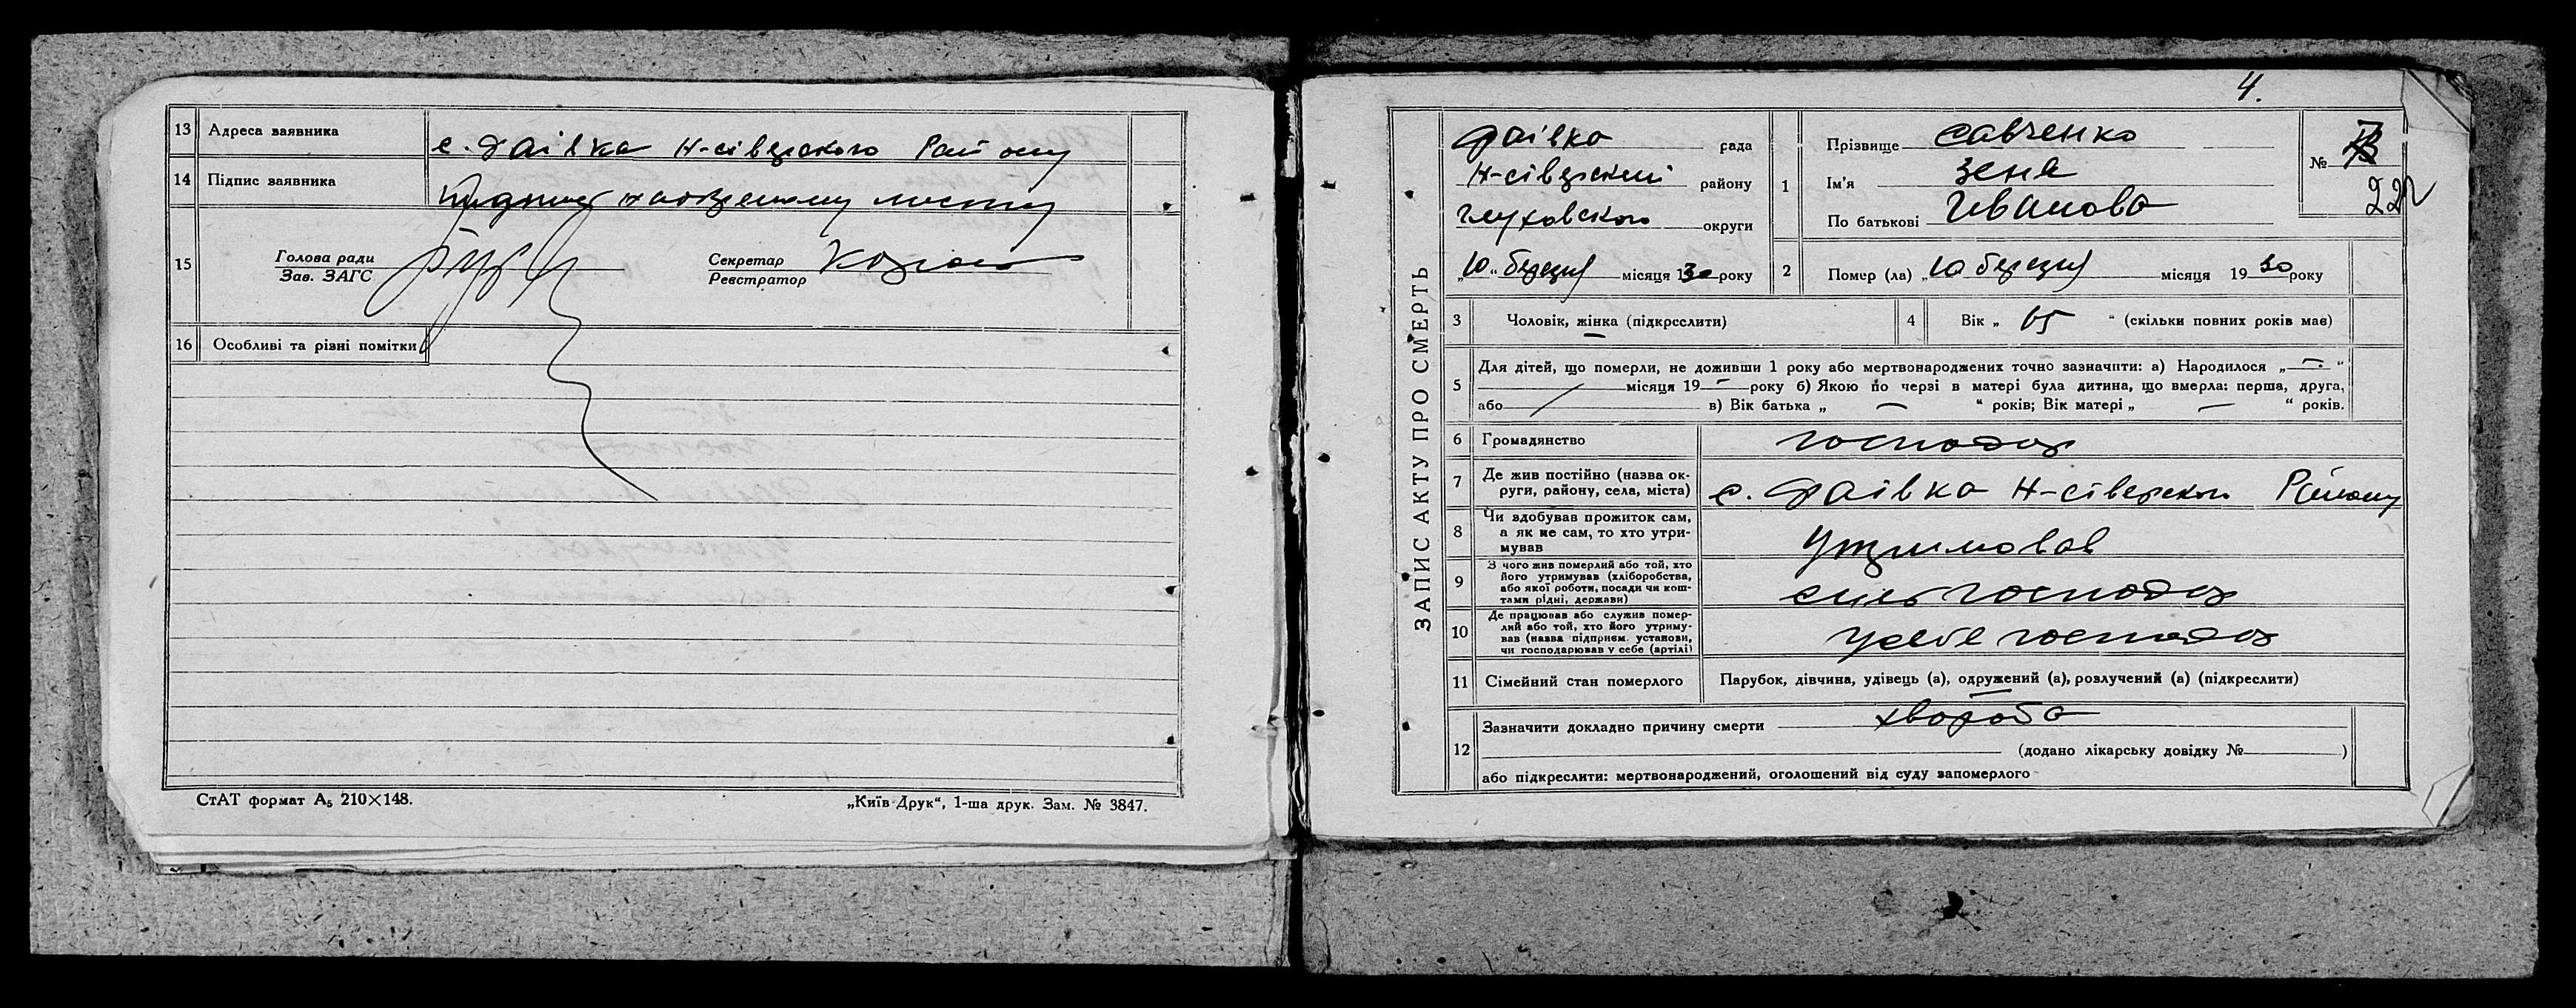 13 Адреса заявника с. Фаівка Н-сіверского Району
14 Підпис заявника Підпис на окремому листку
15 Голова ради
Зав. ЗАГС
Секретар
Реєстратор
16 Особливі та різні помітки
СтАТ формат А₅ 210×148.
„Київ-Друк“, 1-ша друк. Зам. № 3847.
4.
ЗАПИС АКТУ ПРО СМЕРТЬ
Фаівка рада
Н-сіверский району
Глуховского округи
„10“ березня місяця 1930 року
1 Прізвище Савченко
Ім’я Зена
По батькові Иванова
№
22
2 Помер (ла) „10 березня місяця 1930 року
3 Чоловік, жінка (підкреслити)
4 Вік „ 65 “ (скільки повних років має)
5 Для дітей, що померли, не доживши 1 року або мертвонароджених точно зазначити: а) Народилося „ — “
місяця 19 — року б) Якою по черзі в матері була дитина, що вмерла: перша, друга,
або в) Вік батька „ — “ років; Вік матері „ — “ років.
6 Громадянство господар
7 Де жив постійно (назва ок-
руги, району, села, міста) с. Фаівка Н-сіверского Району
8 Чи здобував прожиток сам,
а як не сам, то хто утри-
мував
Утримовав
9 З чого жив померлий або той, хто
його утримував (хліборобства,
або якої роботи, посади чи кош-
тами рідні, держави)
сильгосподар
10 Де працював або служив помер-
лий або той, хто його утриму-
вав (назва підприєм. установи,
чи господарював у себе (артілі)
усебе господар
11 Сімейний стан померлого Парубок, дівчина, удівець (а), одружений (а), розлучений (а) (підкреслити)
12 Зазначити докладно причину смерти хвороба
(додано лікарську довідку № )
або підкреслити: мертвонароджений, оголошений від суду запомерлого